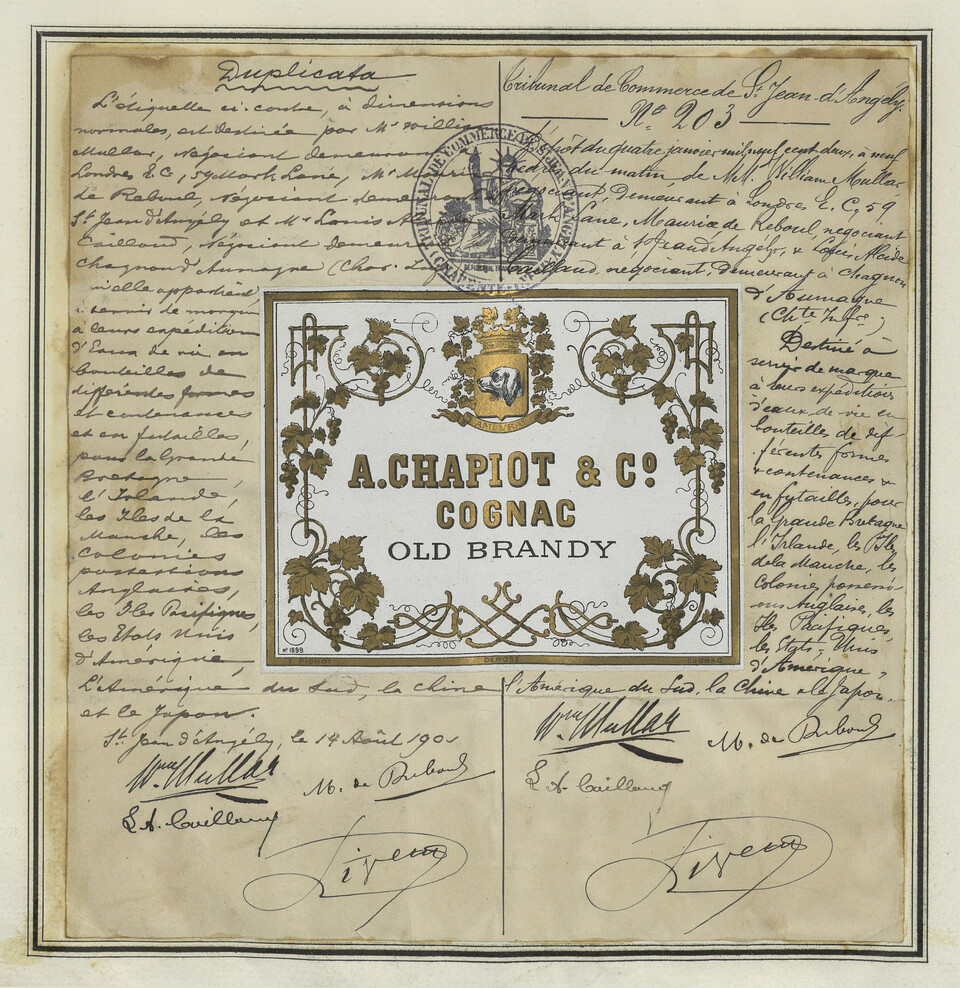 Duplicata
L'étiquette ci-contre, à dimensions
normales, est destinée par Mr William
Mullar, Négociant demeurant
Londres E C, 59 Mark Lane, Mr
de Reboul, Négociant
St Jean d'Angély et Mr Louis
Caillaud, Négociant
Chagnon d'Aumagne (Char.
elle appartient
servir de marque
à leurs expéditions
d'Eaux de vie en
bouteilles de
différentes formes
et contenances
et en futailles,
pour la Grande
Bretagne,
l'Irlande,
les Iles de la
Manche, les
Colonies
possessions
Anglaises,
les Iles Pacifiques,
les Etats Unis
d'Amérique,
L'Amérique du Sud, la Chine
et le Japon.
St Jean d'Angély, le 14 Août 1901
Wm Mullar
M. de Reboul
L A. Caillaud
Tribunal de Commerce de St Jean-d'Angély.
No 203
Dépôt du quatre janvier mil neuf cent deux, à neuf
heures du matin de MM. William Mullar
négociant, Demeurant à Londres E. C, 59
Mark Lane, Maurice de Reboul négociant
demeurant à St Jean d'Angély, & Louis Alcide
Caillaud, négociant, Demeurant à Chagnon
d'Aumagne
(Chte Infre)
Destiné à
servir de marque
à leurs expéditions
d'eaux de vie en
bouteilles de dif-
férentes formes
& contenances &
en futailles, pour
la Grande Bretagne
l'Irlande, les Iles
de la Manche, les
Colonies, possessi-
ons Anglaises, les
Iles Pacifiques,
les Etats-Unis
d'Amérique,
l'Amérique du Sud, la Chine & le Japon.
Wm Mullar
M. de Reboul
L A. Caillaud
TRIBUNAL DE COMMERCE DE ST JEAN D'ANGELY
A. CHAPIOT & Co.
COGNAC
OLD BRANDY
No 1899
F. PICHOT
DÉPOSÉ
COGNAC